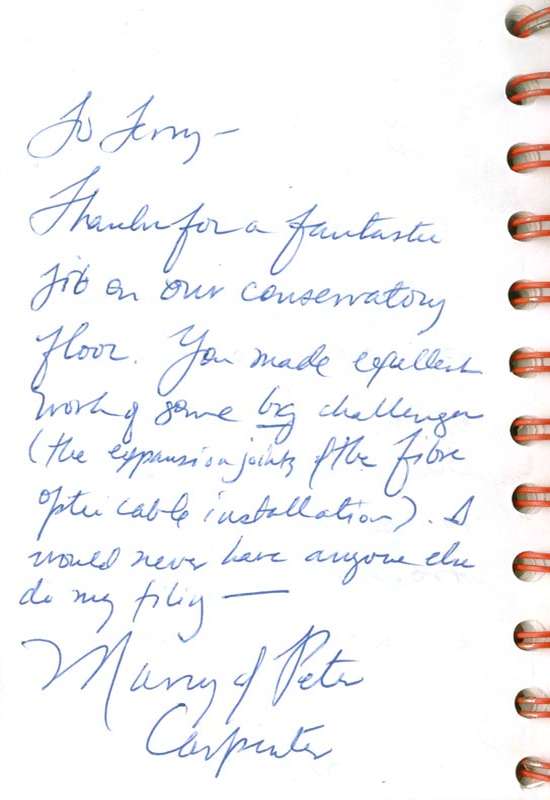 To Terry –
Thanks for a fantastic
job on our conservatory
floor. You made excellent
work of some big challenges
(the expansion joints & the fibre
optic cable installation). I
would never have anyone else
do my tiling —
& Peter
Carpenter